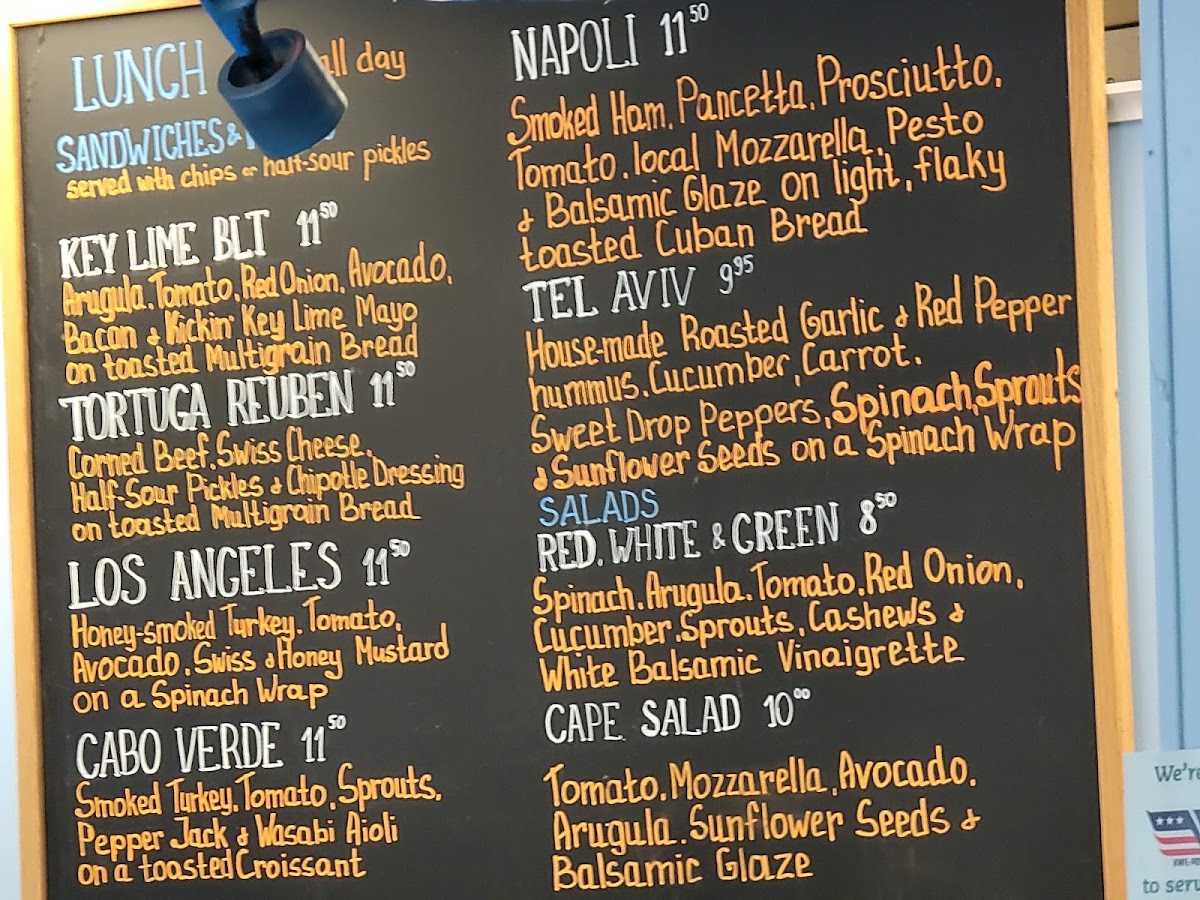 LUNCH all day
SANDWICHES &
served with chips or half-sour pickles
KEY LIME BLT 11 50
Arugula, Tomato, Red Onion, Avocado,
Bacon & Kickin' Key Lime Mayo
on toasted Multigrain Bread
TORTUGA REUBEN 11 50
Corned Beef, Swiss Cheese,
Half-Sour Pickles & Chipotle Dressing
on toasted Multigrain Bread
LOS ANGELES 11 50
Honey-smoked Turkey, Tomato,
Avocado, Swiss & Honey Mustard
on a Spinach Wrap
CABO VERDE 11 50
Smoked Turkey, Tomato, Sprouts,
Pepper Jack & Wasabi Aioli
on a toasted Croissant
NAPOLI 11 50
Smoked Ham, Pancetta, Prosciutto,
Tomato, local Mozzarella, Pesto
& Balsamic Glaze on light, flaky
toasted Cuban Bread
TEL AVIV 9 95
House-made Roasted Garlic & Red Pepper
hummus, Cucumber, Carrot,
Sweet Drop Peppers, Spinach, Sprouts
& Sunflower Seeds on a Spinach Wrap
SALADS
RED, WHITE & GREEN 8 50
Spinach, Arugula, Tomato, Red Onion,
Cucumber, Sprouts, Cashews &
White Balsamic Vinaigrette
CAPE SALAD 10 00
Tomato, Mozzarella, Avocado,
Arugula, Sunflower Seeds &
Balsamic Glaze
We're
to serv